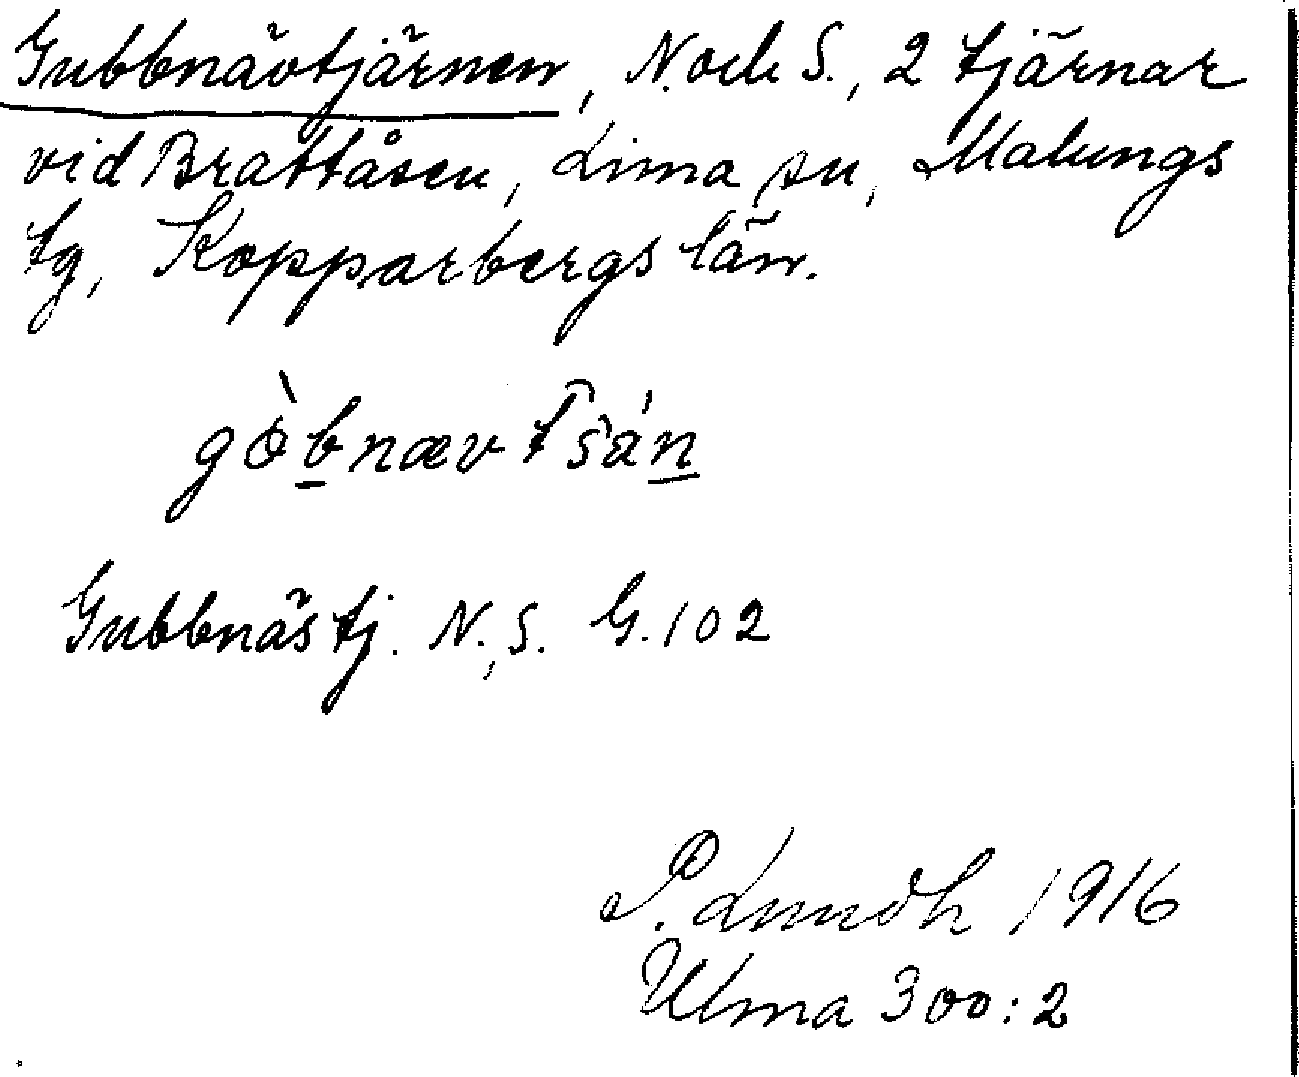 Gubbnävtjärnen, N. och S., 2 tjärnar
vid Brattåsen, Lima sn, Malungs
tg, Kopparbergs län.
gòbnævtšán
Gubbnästj. N., S. G. 102
P. Lundh 1916
Ulma 300:2